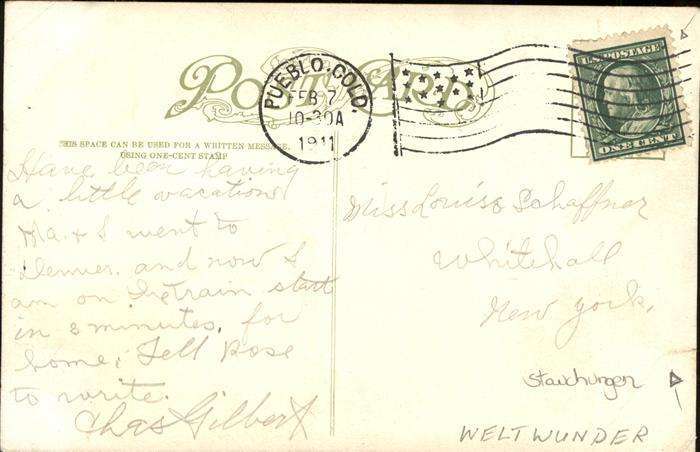 POST CARD
PUEBLO, COLO.
FEB 7
10-30A
1911
U.S. POSTAGE
ONE CENT
THIS SPACE CAN BE USED FOR A WRITTEN MESSAGE,
USING ONE-CENT STAMP
Have been having
a little vacation
Ma & I went to
Denver. and now I
am on the train start
in 8 minutes. for
home. Tell Rose
to write.
Chas Gilbert
Miss Louise Schaffner
Whitehall
New York.
Stauchungen
WELTWUNDER